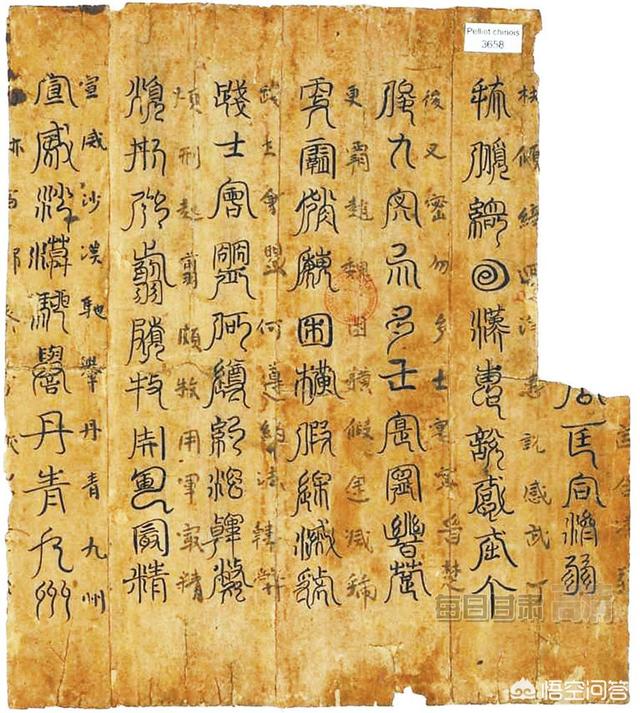 匡合濟弱
公匡合濟弱
扶傾綺迴漢惠説感武丁
扶傾綺回漢惠説感武丁
俊乂密勿多士寔寧晉楚
俊乂密勿多士寔寧晉楚
更霸趙魏困横假途滅虢
更霸趙魏困横假途滅虢
踐土會盟何遵約法韓弊
踐土會盟何遵約法韓弊
煩刑起翦頗牧用軍最精
煩刑起翦頗牧用軍最精
宣威沙漠馳譽丹青九州
宣威沙漠馳譽丹青九州
Pelliot chinois
3658
每日甘肃
悟空问答